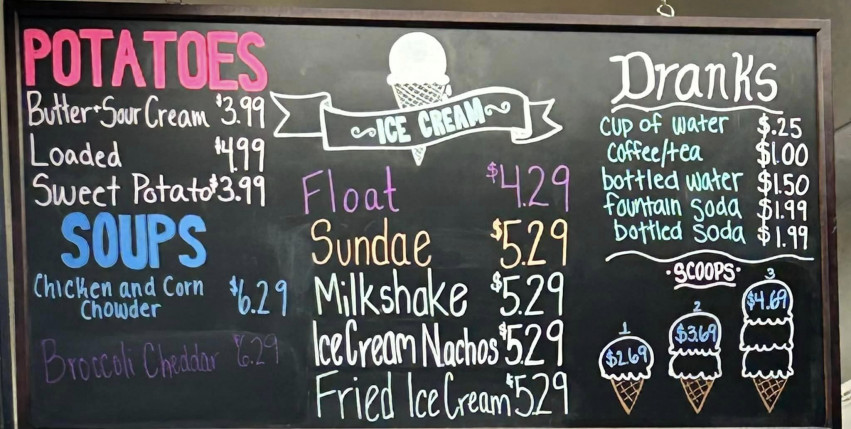 POTATOES
Butter+Sour Cream $3.99
Loaded $4.99
Sweet Potato $3.99
SOUPS
Chicken and Corn $6.29
Chowder
Broccoli Cheddar 6.29
ICE CREAM
Float $4.29
Sundae $5.29
Milkshake $5.29
Ice Cream Nachos $5.29
Fried Ice Cream $5.29
Dranks
Cup of water $.25
Coffee/tea $1.00
bottled water $1.50
fountain soda $1.99
bottled soda $1.99
·SCOOPS·
1 $2.69
2 $3.69
3 $4.69